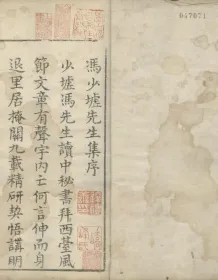 馮少墟先生集序
少墟馮先生讀中秘書拜西臺風
節文章有聲宇内亡何言伸而身
退里居掩關九載精研契悟講明